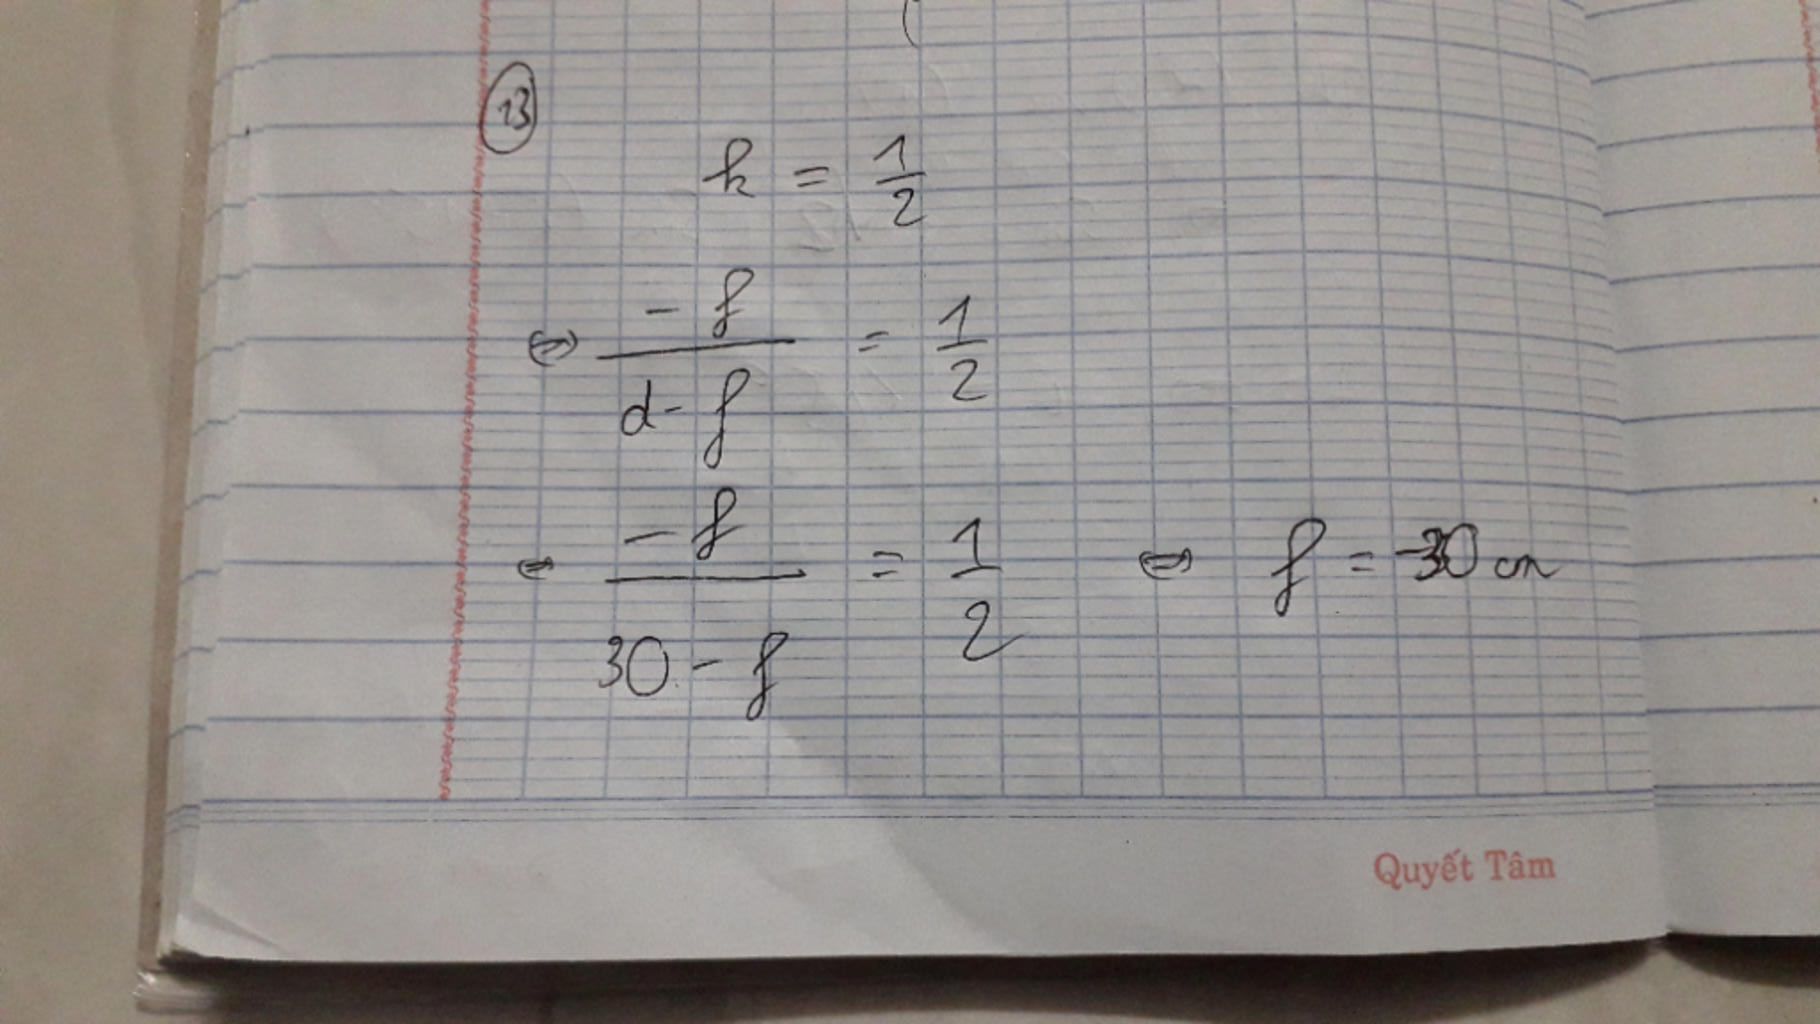 13
k = 1/2
⇔ -f/(d-f) = 1/2
⇔ -f/(30-f) = 1/2 ⇔ f = -30 cm
Quyết Tâm